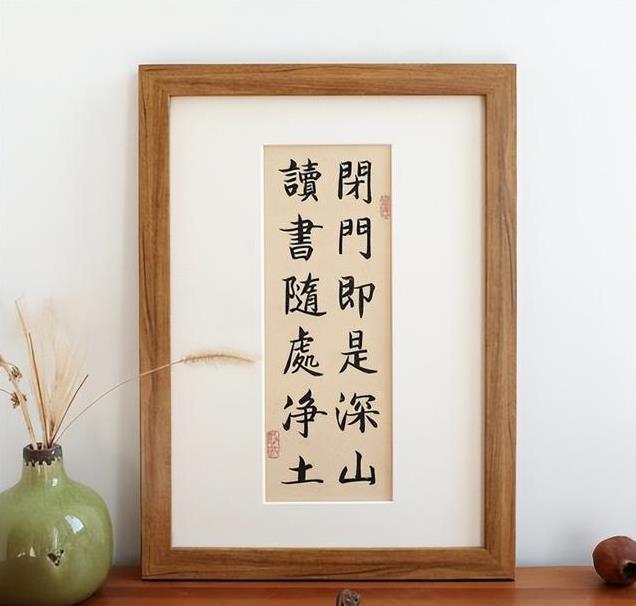 閉門即是深山
讀書隨處净土